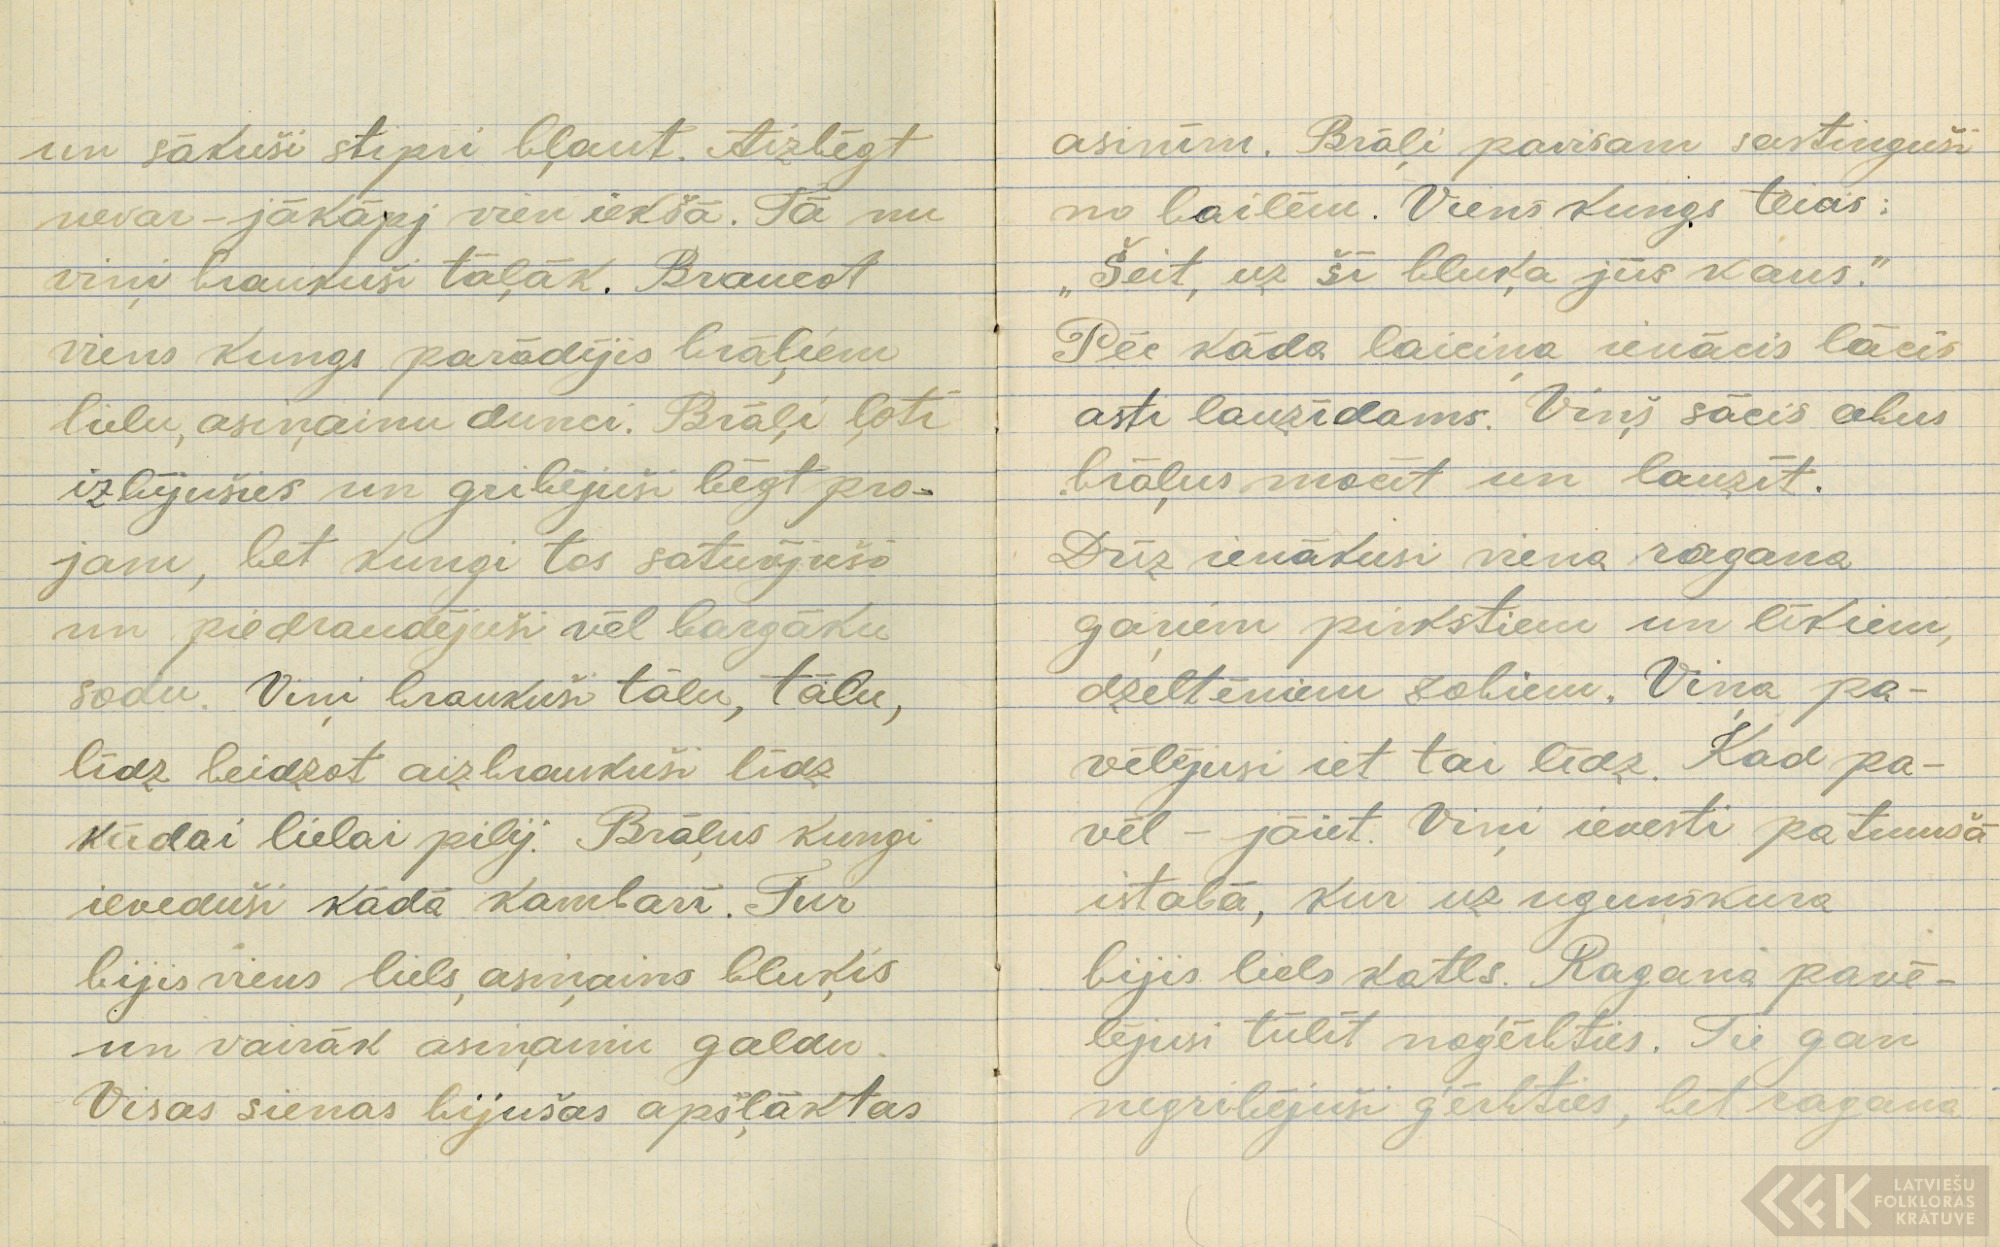 un sākuši stipri bļaut. Aizbēgt
nevar – jākāpj vien iekšā. Tā nu
viņi braukuši tāļāk. Braucot
viens kungs parādījis brāļiem
lielu, asiņainu dunci. Brāļi ļoti
izbijušies un gribējuši bēgt pro-
jam, bet kungi tos satvērjuši
un piedraudējuši vēl bargāku
sodu. Viņi braukuši tālu, tālu,
līdz beidzot aizbraukuši līdz
kādai lielai pilij. Brāļus kungi
ieveduši kādā kambarī. Tur
bijis viens liels, asiņains bluķis
un vairāk asiņainu galdu.
Visas sienas bijušas apšļāktas
asinīm. Brāļi pavisam sastinguši
no bailēm. Viens kungs teicis:
„Šeit, uz šī bluķa jūs kaus."
Pēc kāda laiciņa ienācis lācis
asti lauzīdams. Viņš sācis abus
brāļus mocīt un lauzīt.
Drīz ienākusi viena ragana
gaŗiem pirkstiem un līkiem,
dzelteniem zobiem. Viņa pa-
vēlējusi iet tai līdz. Kad pa-
vēl – jāiet. Viņi ievesti patumšā
istabā, kur uz ugunskura
bijis liels katls. Ragana pavē-
lējusi tūlīt noģērbties. Tie gan
negribējuši ģērbties, bet ragana
LATVIEŠU
FOLKLORAS
KRĀTUVE